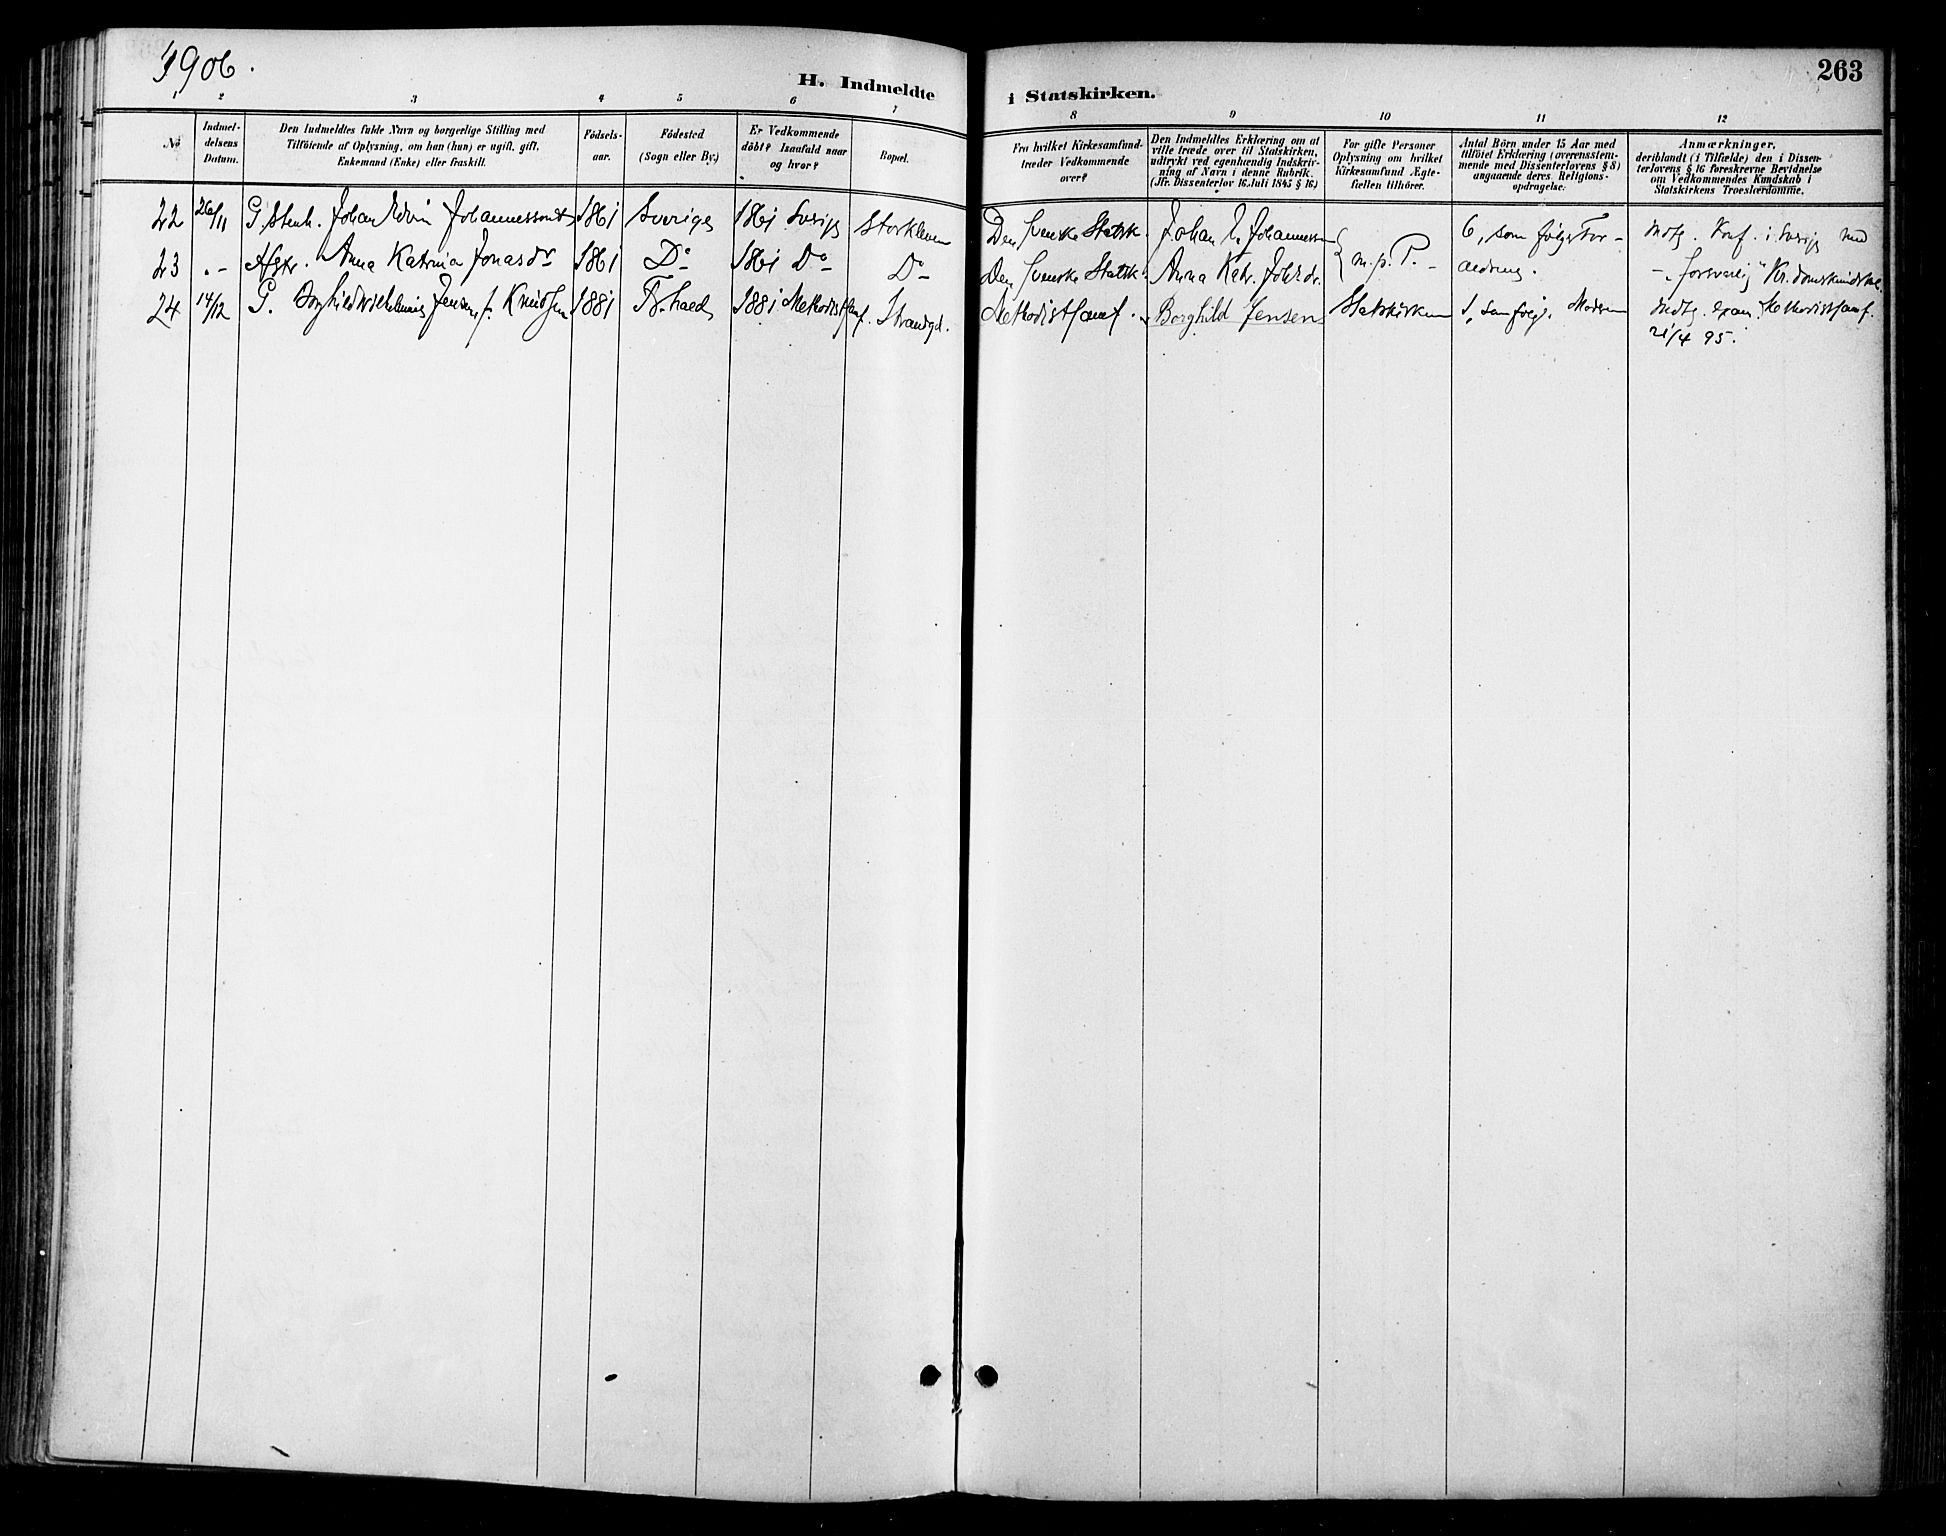 1906.
263
H. Indmeldte i Statskirken.
1 2 3 4 5 6 7 8 9 10 11 12
No
Indmel-
delsens
Datum.
Den Indmeldtes fulde Navn og borgerlige Stilling med
Tilföiende af Oplysning, om han (hun) er ugift, gift,
Enkemand (Enke) eller fraskilt.
Födsels-
aar.
Födested
(Sogn eller By.)
Er Vedkommende
döbt? Isaafald naar
og hvor?
Bopæl.
Fra hvilket Kirkesamfund
træder Vedkommende
over?
Den Indmeldtes Erklæring om at
ville træde over til Statskirken,
udtrykt ved egenhændig Indskriv-
ning af Navn i denne Rubrik.
(Jfr. Dissenterlov 16 Juli 1845 § 16)
For gifte Personer
Oplysning om hvilket
Kirkesamfund Ægte-
fællen tilhörer.
Antal Börn under 15 Aar med
tilföiet Erklæring (overensstem-
mende med Dissenterlovens § 8)
angaaende deres Religions-
opdragelse.
Anmærkninger,
deriblandt (i Tilfælde) den i Dissen-
terlovens § 16 foreskrevne Bevidnelse
om Vedkommendes Kundskab i
Statskirkens Troeslærdomme.
22 26/11 G. Stenh. Johan Edvin Johannesson 1861 Sverige 1861 Sverige Storkleven Den svenske Statsk. Johan E. Johannesson m. p. P. 6, som følger For- Modtg. Konf. i Sverige med
23 " - Hstr. Anna Katrina Jonasdr 1861 Do - 1861 Do - Do - Den svenske Statsk. Anna Katr. ældrene. - "forsvarlig" Kr.domskundskab.
24 14/12 G. Borghild Wilhelmine Jensen f. Knudsen 1881 Fr.hald 1881 Methodistsamf. Strandgd. Methodistsamf. Borghild Jensen Statskirken 1, som følger Moderen Modtg. exam. Methodistsamf.
21/4 95.